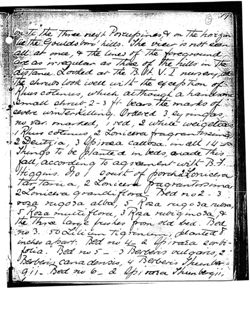 on to the Three next Porcupines & on the horizon
the Gouldsboro hills. The view is not seen
all at once, & the lines of the foreground
are as irregular as those of the hills in the
distance. Looked at the B. & V. I. nursery, all
the shrubs look well with the exception of
Rhus cotinus, which although a handsome
small shrub 2-3 ft bears the marks of
severe winterkilling. Ordered 3
var. 1 red, 2 white weigelias
1 Rhus cotinus, 2 Lonicera fragrantissima
2 Deutzia, 3 Spiraea callosa, small 14 var.
things to be planted in beds and the
fall, according to agreement with B. F.
Higgins. No 1 south of porch Lonicera
Tartarica, 2 Lonicera fragrantissima
2 Lonicera grandiflora. Bed no 2 - 3
rosa rugosa alba, 5 Rosa rugosa rubra,
5 Rosa multiflora, 3 Rosa rubiginosa, &
the three large bushes from old bed. Bed
no 3. 50 Lilium tigrinum, planted
inches apart. Bed no 4 - 2 Spiraea
folia. Bed no 5 - 3 Berberis vulgaris, 2
Berberis canadensis, 4 Berberis Thunber-
gii. Bed no 6 - 2 Spiraea Thunbergii,